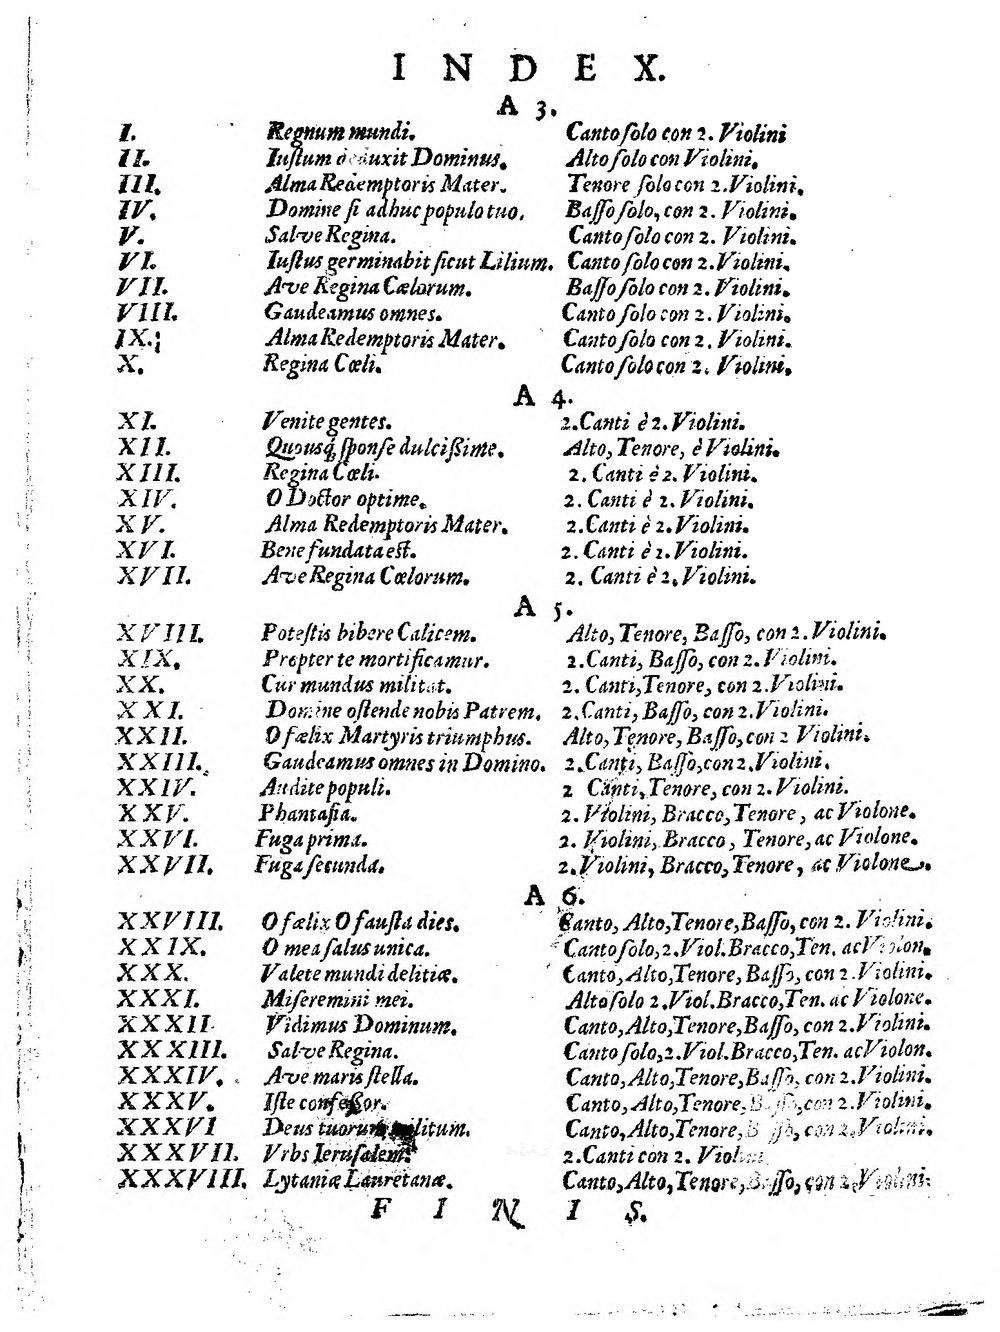 INDEX.
A 3.
I. Regnum mundi. Canto ſolo con 2. Violini
II. Iuſtum deduxit Dominus. Alto ſolo con Violini.
III. Alma Redemptoris Mater. Tenore ſolo con 2. Violini.
IV. Domine ſi adhuc populo tuo. Baſſo ſolo, con 2. Violini.
V. Salve Regina. Canto ſolo con 2. Violini.
VI. Iuſtus germinabit ſicut Lilium. Canto ſolo con 2. Violini.
VII. Ave Regina Cælorum. Baſſo ſolo con 2. Violini.
VIII. Gaudeamus omnes. Canto ſolo con 2. Violini.
IX. Alma Redemptoris Mater. Canto ſolo con 2. Violini.
X. Regina Cœli. Canto ſolo con 2. Violini.
A 4.
XI. Venite gentes. 2. Canti è 2. Violini.
XII. Quousq; ſponſe dulciſsime. Alto, Tenore, è Violini.
XIII. Regina Cœli. 2. Canti è 2. Violini.
XIV. O Doctor optime. 2. Canti è 2. Violini.
XV. Alma Redemptoris Mater. 2. Canti è 2. Violini.
XVI. Bene fundata eſt. 2. Canti è 2. Violini.
XVII. Ave Regina Cœlorum. 2. Canti è 2. Violini.
A 5.
XVIII. Poteſtis bibere Calicem. Alto, Tenore, Baſſo, con 2. Violini.
XIX. Propter te mortificamur. 2. Canti, Baſſo, con 2. Violini.
XX. Cur mundus militat. 2. Canti, Tenore, con 2. Violini.
XXI. Domine oſtende nobis Patrem. 2. Canti, Baſſo, con 2. Violini.
XXII. O fælix Martyris triumphus. Alto, Tenore, Baſſo, con 2 Violini.
XXIII. Gaudeamus omnes in Domino. 2. Canti, Baſſo, con 2. Violini.
XXIV. Audite populi. 2 Canti, Tenore, con 2. Violini.
XXV. Phantaſia. 2. Violini, Bracco, Tenore, ac Violone.
XXVI. Fuga prima. 2. Violini, Bracco, Tenore, ac Violone.
XXVII. Fuga ſecunda. 2. Violini, Bracco, Tenore, ac Violone.
A 6.
XXVIII. O fælix O fauſta dies. Canto, Alto, Tenore, Baſſo, con 2. Violini.
XXIX. O mea ſalus unica. Canto ſolo, 2. Viol. Bracco, Ten. ac Violon.
XXX. Valete mundi delitiæ. Canto, Alto, Tenore, Baſſo, con 2. Violini.
XXXI. Miſeremini mei. Alto ſolo 2. Viol. Bracco, Ten. ac Violone.
XXXII. Vidimus Dominum. Canto, Alto, Tenore, Baſſo, con 2. Violini.
XXXIII. Salve Regina. Canto ſolo, 2. Viol. Bracco, Ten. ac Violon.
XXXIV. Ave maris ſtella. Canto, Alto, Tenore, Baſſo, con 2. Violini.
XXXV. Iſte confeſsor. Canto, Alto, Tenore, Baſſo, con 2. Violini.
XXXVI Deus tuorum militum. Canto, Alto, Tenore, Baſſo, con 2. Violini.
XXXVII. Vrbs Ieruſalem. 2. Canti con 2. Violini
XXXVIII. Lytaniæ Lauretanæ. Canto, Alto, Tenore, Baſſo, con 2. Violini.
FINIS.